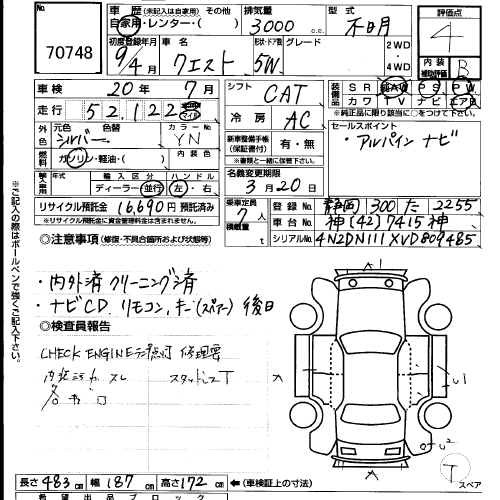 No.
70748
車歴 (未記入は自家用) その他
自家用・レンター・( )
排気量
3000 c.c.
型式
不明
評価点
4
内装
補助評価
B
初度登録年月
9/4
車名
クエスト
形状・ドア数
5W
グレード
2WD
・
4WD
車検 20年 7月
走行 52,122 マイル
シフト
CAT
冷房
AC
装備品
SR 純AW PS PW
カワ TV ナビ エアB
※純正品に限り該当に○をつけて下さい。
外色
元色
シルバー
色替
カラーNo.
YN
燃料
ガソリン・軽油・( )
内装色
新車整備手帳
(保証書付)
有・無
※書類と一緒に保管下さい。
セールスポイント
・アルパイン ナビ
輸入車用
年モデル
輸入区分
ディーラー・並行
ハンドル
左・右
名義変更期限
3月20日
リサイクル預託金 16,690円 預託済み
※リサイクル預託金に資金管理料金は含まれません。
乗車定員
7人
積載量
t
登録No. 静岡 300 た 2255
車台No. 神[42]7415神
シリアルNo. 4N2DN111XVD809485
◎注意事項 (修復・不具合箇所および状態等)
・内外済 クリーニング済
・ナビCD、リモコン、キー(スペアー) 後日
◎検査員報告
CHECK ENGINEランプ点灯 修理要
スレ スタッドレスT
※ご記入の際はボールペンで強くご記入下さい。
A1
T
スペア
長さ 483cm 幅 187cm 高さ 172cm ←(車検証上の寸法)
希望出品ブロック